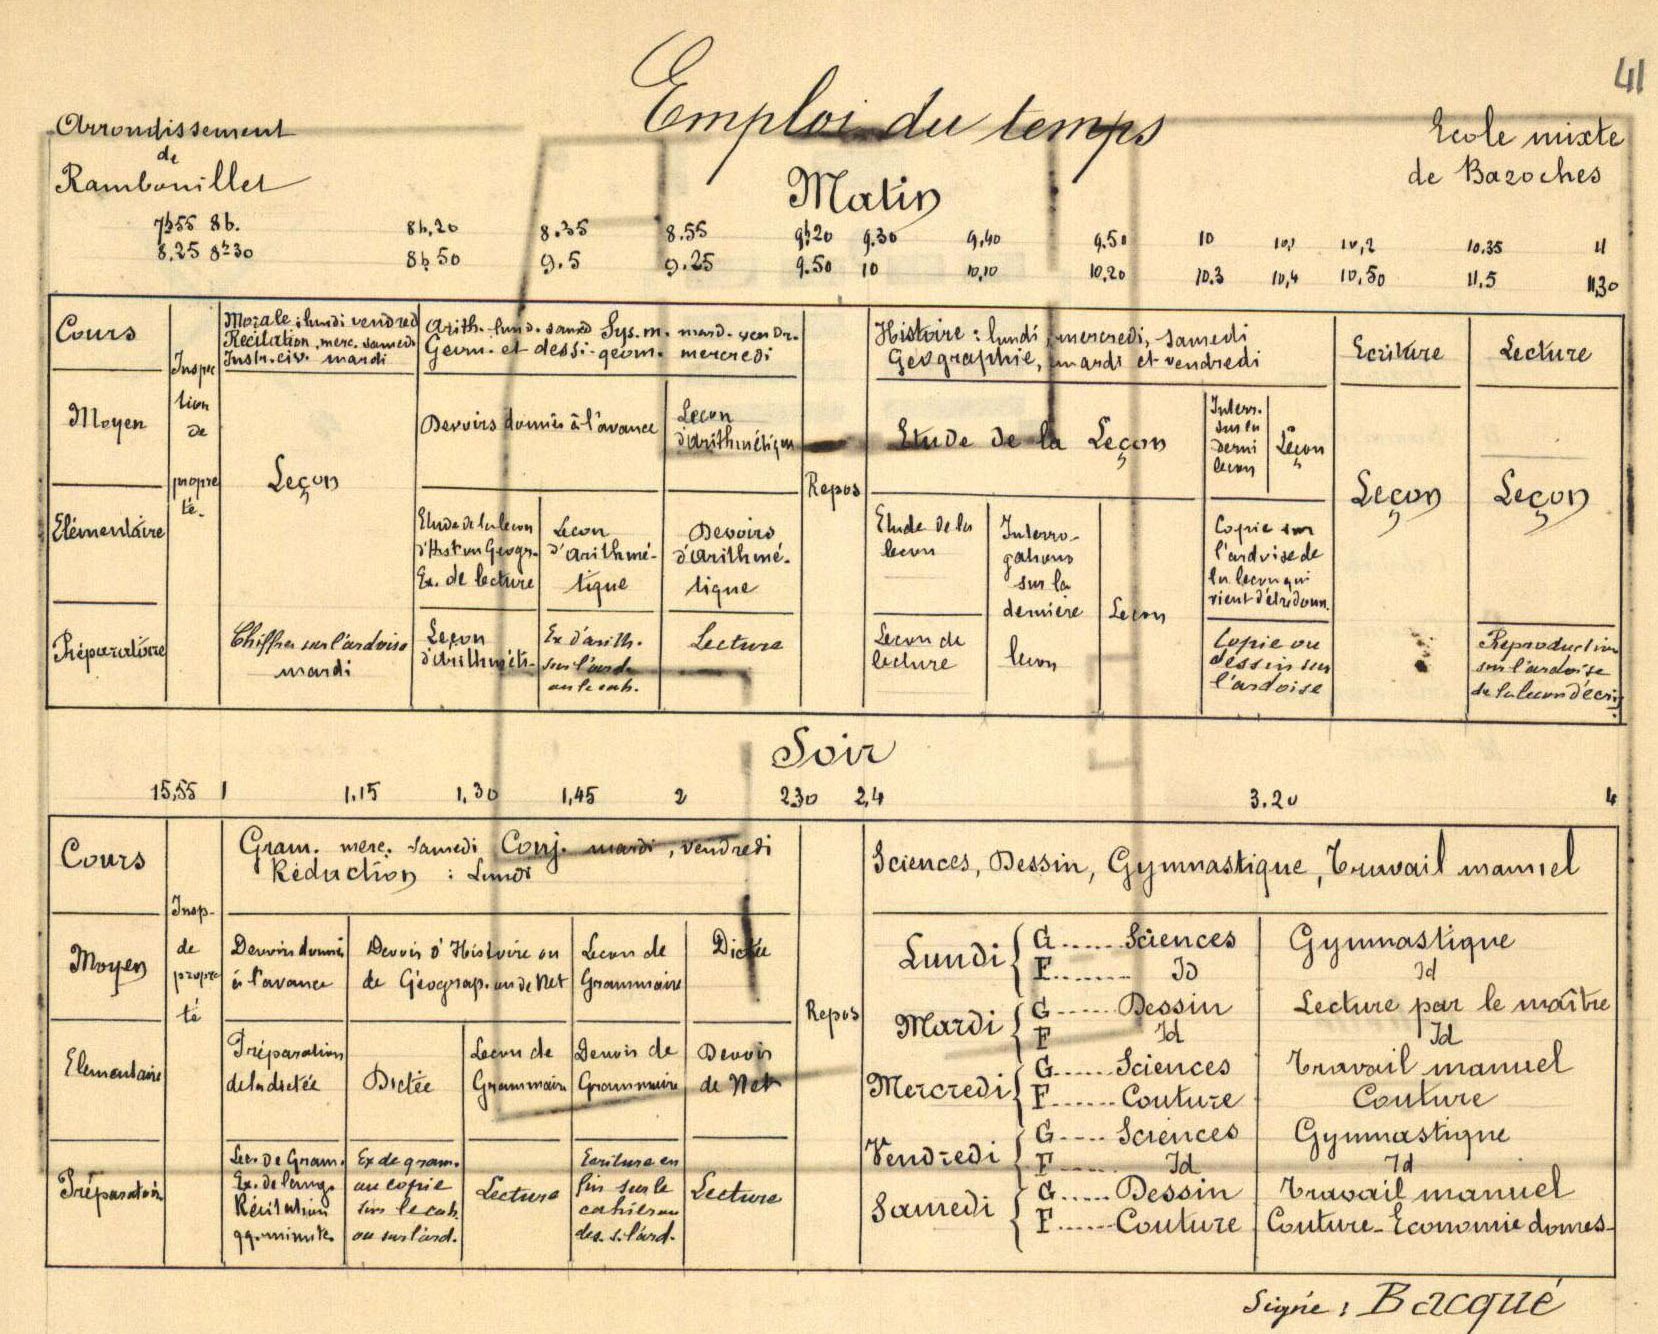 41
Emploi du temps
Arrondissement
de
Rambouillet
Ecole mixte
de Bazoches
Matin
7h55 8h. 8h,20 8.35 8.55 9h20 9.30 9,40 9.50 10 10,1 10,2 10.35 11
8.25 8h30 8h50 9.5 9.25 9.50 10 10,10 10,20 10.3 10,4 10,50 11.5 11,30
Cours
Inspec
tion
de
propre
té.
Morale : lundi vendred
Récitation, merc. samedi
Instr. civ. mardi
Arith. lund. samed Sys. m. mard. vendr.
Géom. et dessi. géom. mercredi
Histoire : lundi, mercredi, samedi
Géographie, mardi et vendredi
Ecriture
Lecture
Moyen
Leçon
Devoirs donnés à l'avance
Leçon
d'arithmétique
Repos
Etude de la Leçon
Interr.
sur la
derni
leçon
Leçon
Leçon
Leçon
Elémentaire
Etude de la leçon
d'Hist ou Géogr.
Ex. de lecture
Leçon
d'arithmé-
tique
Devoirs
d'arithmé-
tique
Etude de la
leçon
Interro-
gations
sur la
dernière
leçon
Leçon
Copie sur
l'ardoise de
la leçon qui
vient d'être donn.
Préparatoire
Chiffres sur l'ardoise
mardi
Leçon
d'arithméti-
Ex d'arith.
sur l'ard.
ou le cah.
Lecture
Leçon de
lecture
Copie ou
dessin sur
l'ardoise
Reproduction
sur l'ardoise
de la leçon d'écri
Soir
15,55 1 1,15 1,30 1,45 2 2.30 2,4 3.20 4
Cours
Insp.
de
propre
té
Gram. merc. samedi Conj. mardi, vendredi
Rédaction : Lundi
Repos
Sciences, Dessin, Gymnastique, Travail manuel
Moyen
Devoirs donnés
à l'avance
Devoir d'Histoire ou
de Géograp. ou de Net
Leçon de
Grammaire
Dictée
Elementaire
Préparation
de la dictée
Dictée
Leçon de
Grammaire
Devoir de
Grammaire
Devoir
de Net
Préparatoir
Lec. de Gram.
Ex. de lang.
Récitation
qq. minute.
Ex de gram.
ou copie
sur le cah.
ou sur l'ard.
Lecture
Ecriture en
fin sur le
cahier ou
des. s. l'ard.
Lecture
Lundi { G...... Sciences Gymnastique
F........ Id Id
Mardi { G...... Dessin Lecture par le maître
F Id Id
Mercredi { G...... Sciences Travail manuel
F...... Couture Couture
Vendredi { G..... Sciences Gymnastique
F...... Id Id
Samedi { G..... Dessin Travail manuel
F...... Couture Couture - Economie domes-
Signé : Bacqué